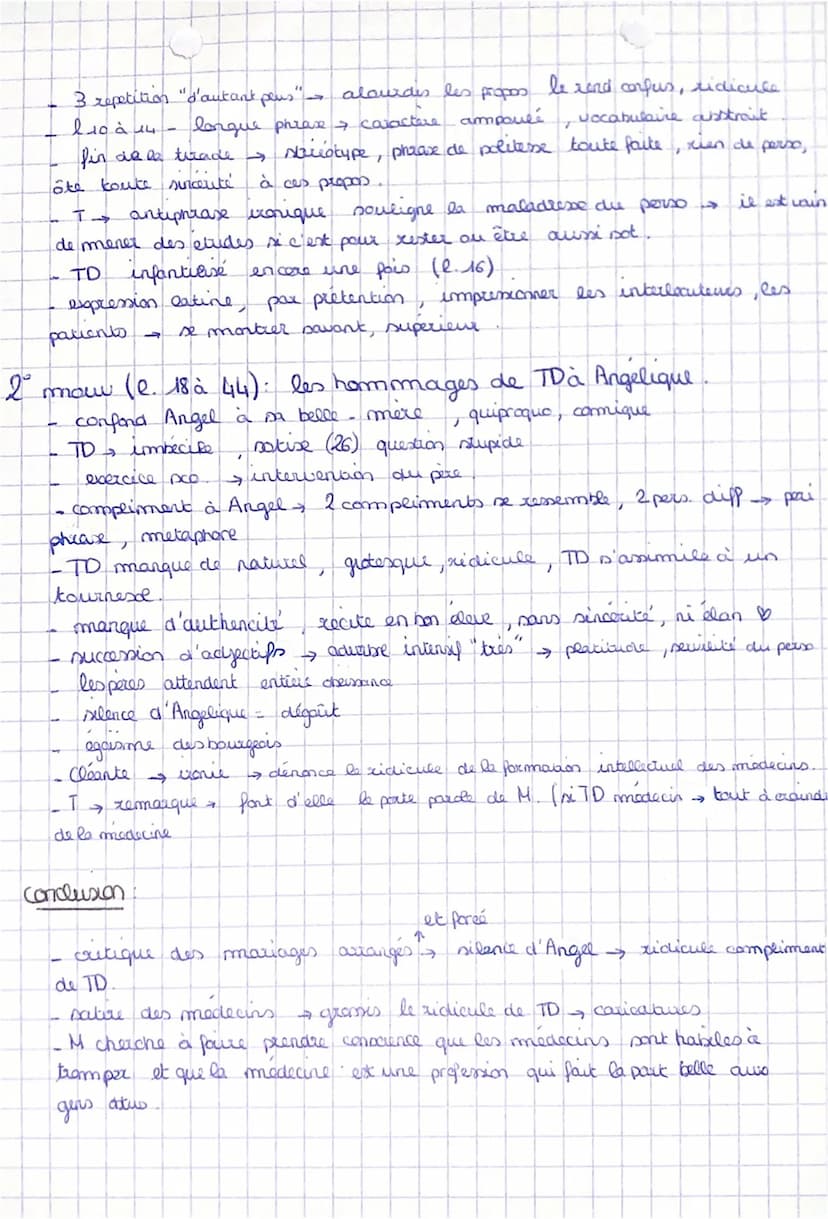 - 3 repetition "d'autant plus" → alourdis les propos le rend confus, ridicule
- l 10 à 14 - longue phrase → caractère ampoulé, vocabulaire abstrait.
- fin de la tirade → stéréotype, phrase de politesse toute faite, rien de perso,
ôte toute sincérité à ces propos.
- T → antiphrase ironique souligne la maladresse du perso → il est vain
de mener des etudes si c'est pour rester ou être aussi sot.
- TD infantilisé encore une fois (l. 16)
- expression latine, par prétention, impressionner les interlocuteurs, les
patients → se montrer savant, supérieur.
2° mouv (l. 18 à 44) : les hommages de TD à Angélique.
- confond Angel à sa belle-mère, quiproquo, comique
- TD → imbécile, sotise (26) question stupide
- exercice sco. → intervention du père.
- compliment à Angel → 2 compliments se ressemble, 2 pers. diff → péri
phrase, metaphore
- TD manque de naturel, grotesque, ridicule, TD s'assimile à un
tournesol.
- manque d'authencité, récite en bon élève, sans sincérité, ni élan ♡
- succession d'adjectifs → adverbe intensif "très" → platitude, servilité du perso
- les pères attendent entière obeissance
- silence d'Angelique = dégoût
- égoïsme des bourgeois
- Cléante → ironie → dénonce le ridicule de la formation intellectuel des médecins.
- T → remarque → font d'elle le porte parole de M. (si TD médecin → tout à craindre
de la médecine
Conclusion :
et forcé
- critique des mariages arrangés → silence d'Angel → ridicule compliment
de TD.
- satire des médecins → grossis le ridicule de TD → caricatures
- M cherche à faire prendre conscience que les médecins sont habiles à
tromper et que la médecine est une profession qui fait la part belle aux
gens